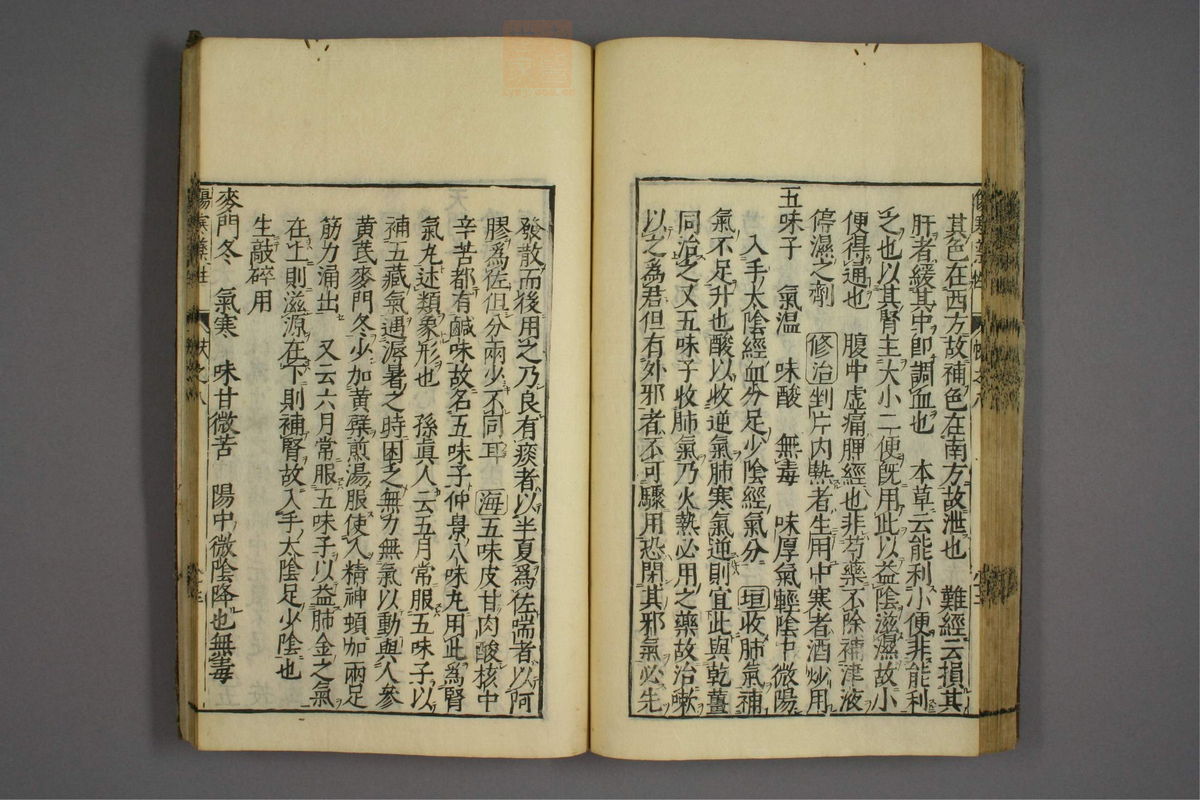 其色在西方故補色在南方故泄也　難經云損其
肝者緩其中即調血也　本草云能利小便非能利
之也以其腎主大小二便既用此以益陰滋濕故小
便得通也　腹中虛痛脾經也非芍藥不除補津液
停濕之劑　修治剉片内熱者生用中寒者酒炒用
五味子　氣温　味酸　無毒　味厚氣輕陰中微陽
入手太陰經血分足少陰經氣分　垣收肺氣補
氣不足升也酸以收逆氣肺寒氣逆則宜此與乾薑
同治之又五味子收肺氣乃火熱必用之藥故治嗽
以之為君但有外邪者不可驟用恐閉其邪氣必先
發散而後用之乃良有痰者以半夏為佐喘者以阿
膠為佐但分兩少不同耳　海五味皮甘肉酸核中
辛苦都有鹹味故名五味子仲景八味丸用此為腎
氣丸述類象形也　孫真人云五月常服五味子以
補五藏氣遇溽暑之時困乏無力無氣以動與人參
黃芪麥門冬少加黃蘗煎湯服使人精神頓加兩足
筋力涌出　又云六月常服五味子以益肺金之氣
在上則滋源在下則補腎故入手太陰足少陰也
生敲碎用
麥門冬　氣寒　味甘微苦　陽中微陰降也無毒